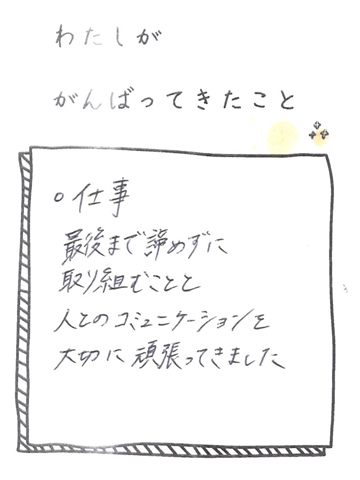 わたしが
がんばってきたこと
○仕事
最後まで諦めずに
取り組むことと
人とのコミュニケーションを
大切に頑張ってきました